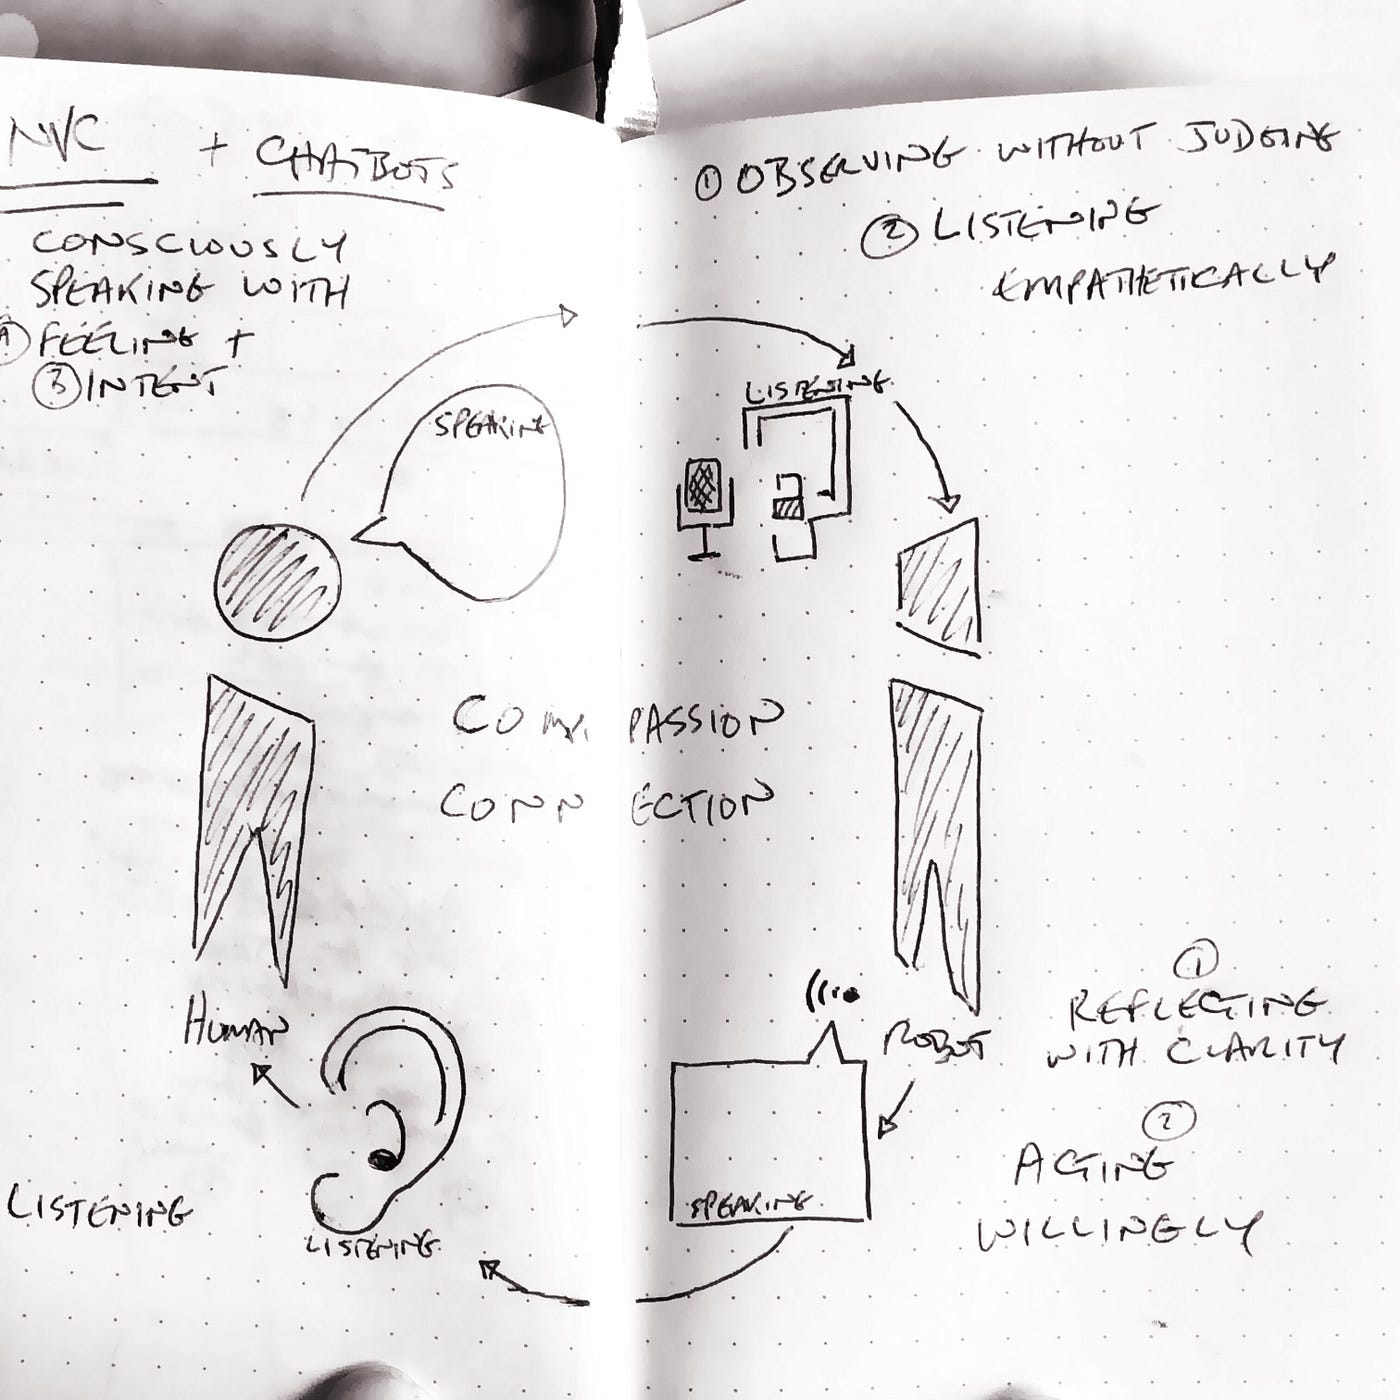 NVC + CHATBOTS
CONSCIOUSLY
SPEAKING WITH
FEELING +
③ INTENT
SPEAKING
HUMAN
LISTENING
LISTENING
COMPASSION
CONNECTION
① OBSERVING WITHOUT JUDGING
② LISTENING
EMPATHETICALLY
LISTENING
ROBOT
SPEAKING
①
REFLECTING
WITH CLARITY
②
ACTING
WILLINGLY